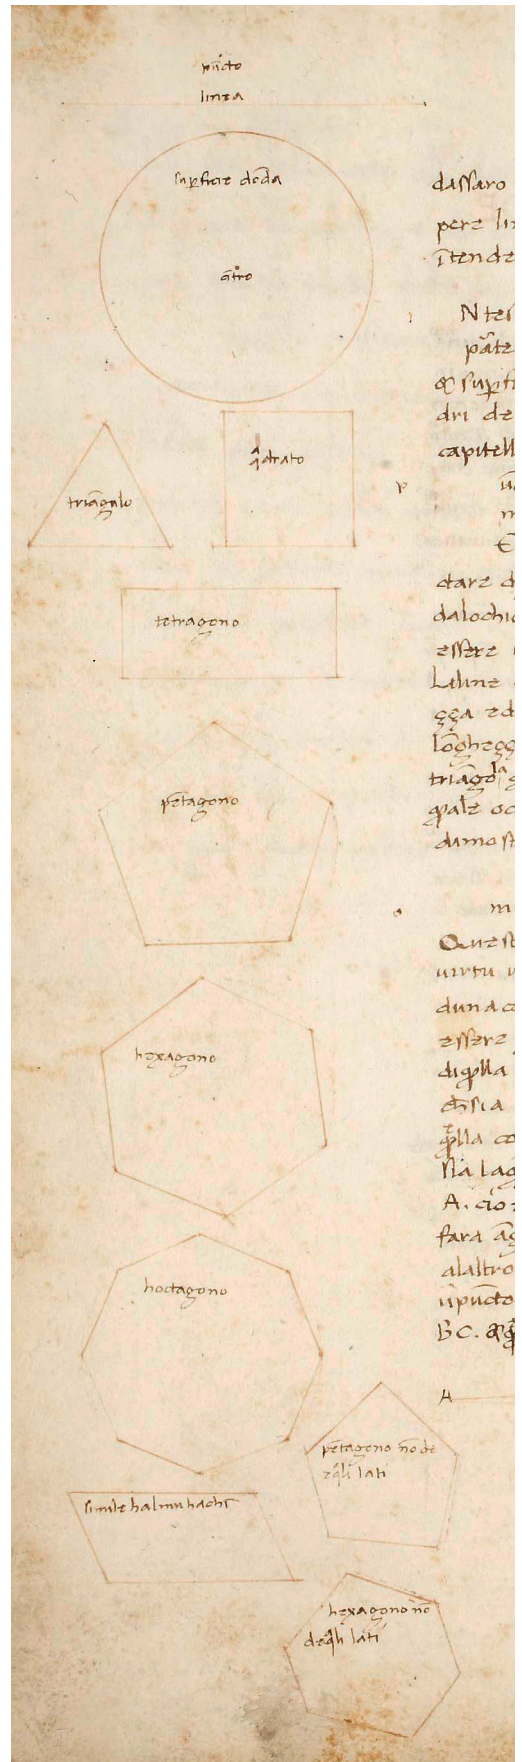 pūcto
linea
suꝑficie tōda
cētro
triāgalo
qͣdrato
tetragono
pētagono
hexagono
hoctagono
pētagono nō de
eqͣli lati
simile halmuhachi
hexagono nō
deqͣli lati
dassaro
pere lin
ītende
N tes
pāte
& supfi
dri de
capitell
ctare d
dalochio
essere
Laline
ççа ed
lōgheçç
triāgola
ꝗale oc
dimost
m
Quest
uirtu u
duna co
essere
diꝗlla
chsia
ꝗlla co
sia lag
A. cio
fara āg
alaltro
ūpūcto
BC. &
A